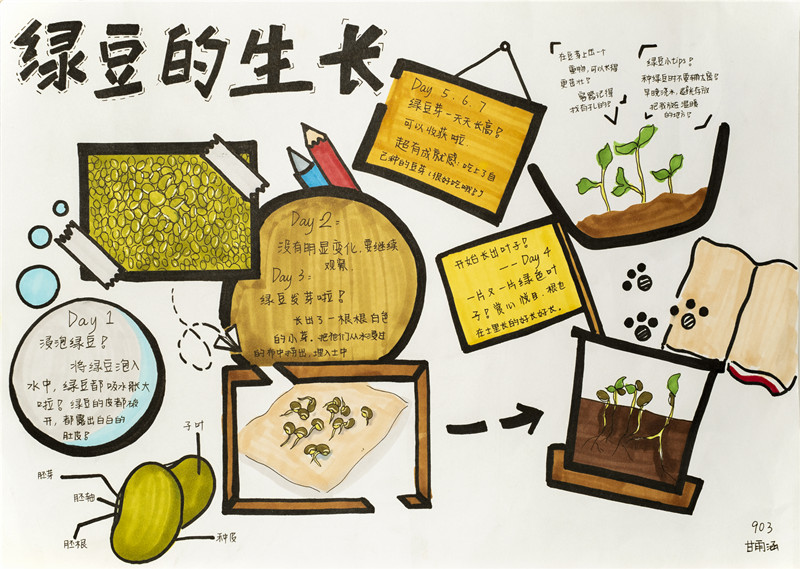 绿豆的生长
Day 1
浸泡绿豆!
将绿豆泡入
水中,绿豆都吸水胀大
啦!绿豆的皮都破
开,都露出白白的
肚皮!
Day 2:
没有明显变化,要继续
观察
Day 3:
绿豆发芽啦!
长出了一根根白色
的小芽,把他们从水浸过
的布中捞出,埋入土中
开始长出叶子!
—— Day 4
一片又一片绿色叶
子!赏心悦目,根也
在土里长的好长好长。
Day 5、6、7
绿豆芽一天天长高!
可以收获啦
超有成就感,吃上了自
己种的豆芽(很好吃哦!)
在豆芽上压一个
重物,可以长得
更茁壮!
绿豆小tips:
种绿豆时不要
把我放在温暖
的地方!
子叶
胚芽
胚轴
胚根
种皮
903
甘雨涵